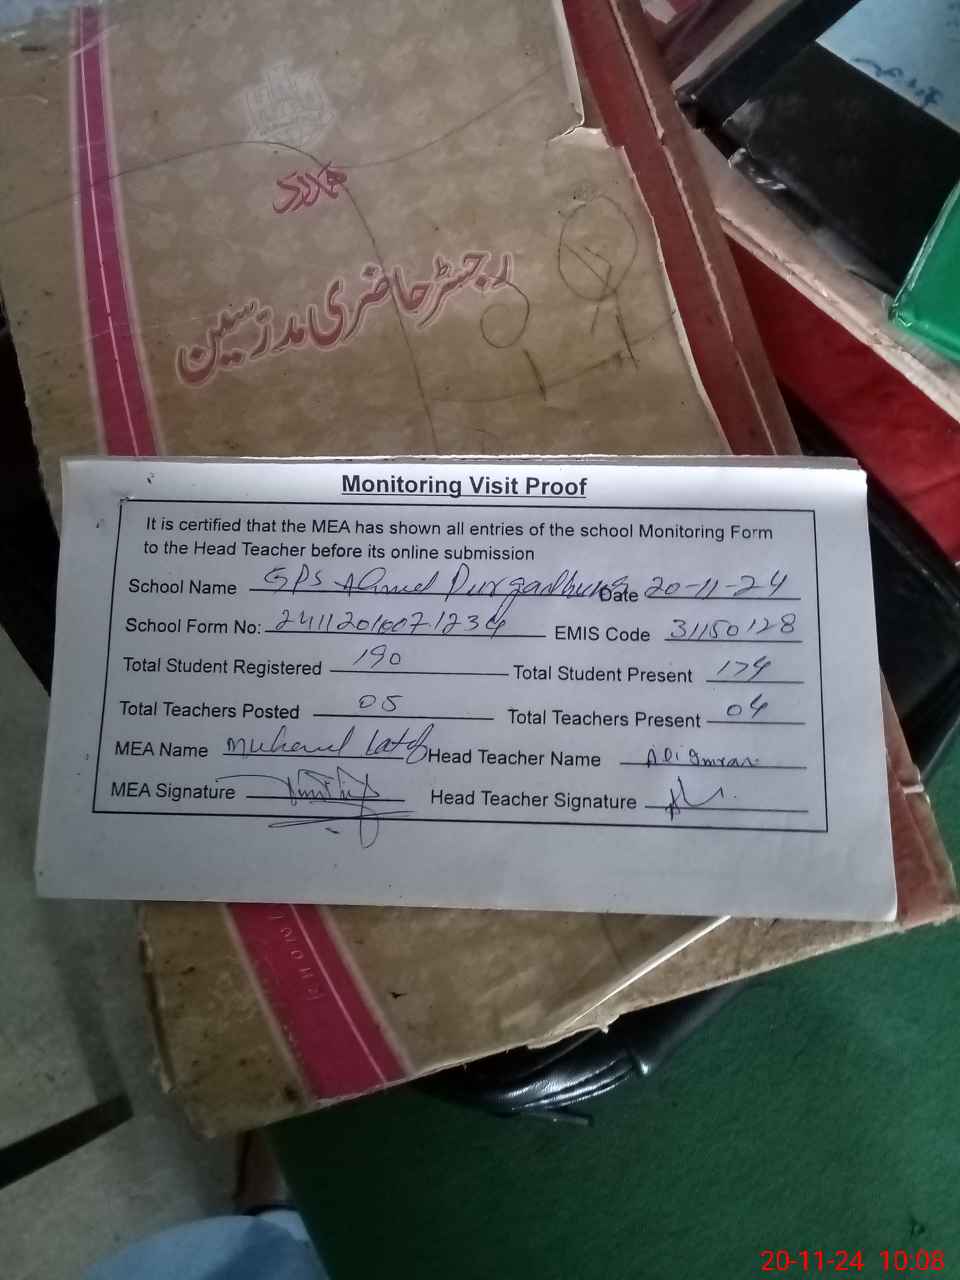 ہمدرد
رجسٹر حاضری مدرسین
Monitoring Visit Proof
It is certified that the MEA has shown all entries of the school Monitoring Form
to the Head Teacher before its online submission
School Name GPS Ahmed Date 20-11-24
School Form No: EMIS Code 31150128
Total Student Registered 190 Total Student Present 174
Total Teachers Posted 05 Total Teachers Present 04
MEA Name Head Teacher Name Ali Imran
MEA Signature Head Teacher Signature
20-11-24 10:08